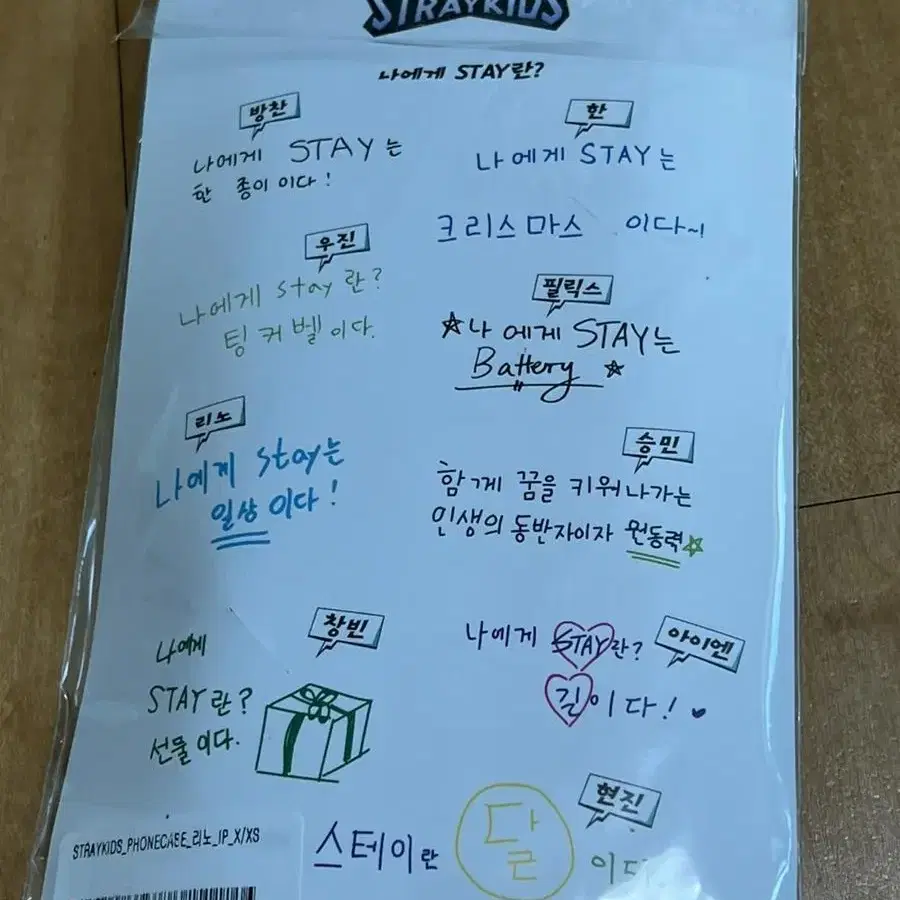 STRAYKIDS
나에게 STAY란?
방찬
나에게 STAY는
한 종이 이다!
한
나에게 STAY는
크리스마스 이다~!
우진
나에게 stay란?
팅커벨이다.
필릭스
☆나에게 STAY는
Battery ☆
리노
나에게 stay는
일상이다!
승민
함께 꿈을 키워나가는
인생의 동반자이자 원동력☆
창빈
나에게
STAY란?
선물이다.
아이엔
나에게 STAY란?
길이다! ♥
현진
스테이란 달 이다
STRAYKIDS_PHONECASE_리노_IP_X/XS